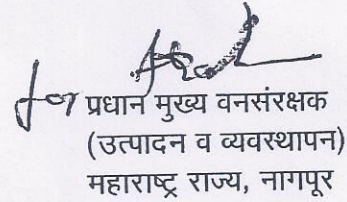 for प्रधान मुख्य वनसंरक्षक
(उत्पादन व व्यवस्थापन)
महाराष्ट्र राज्य, नागपूर